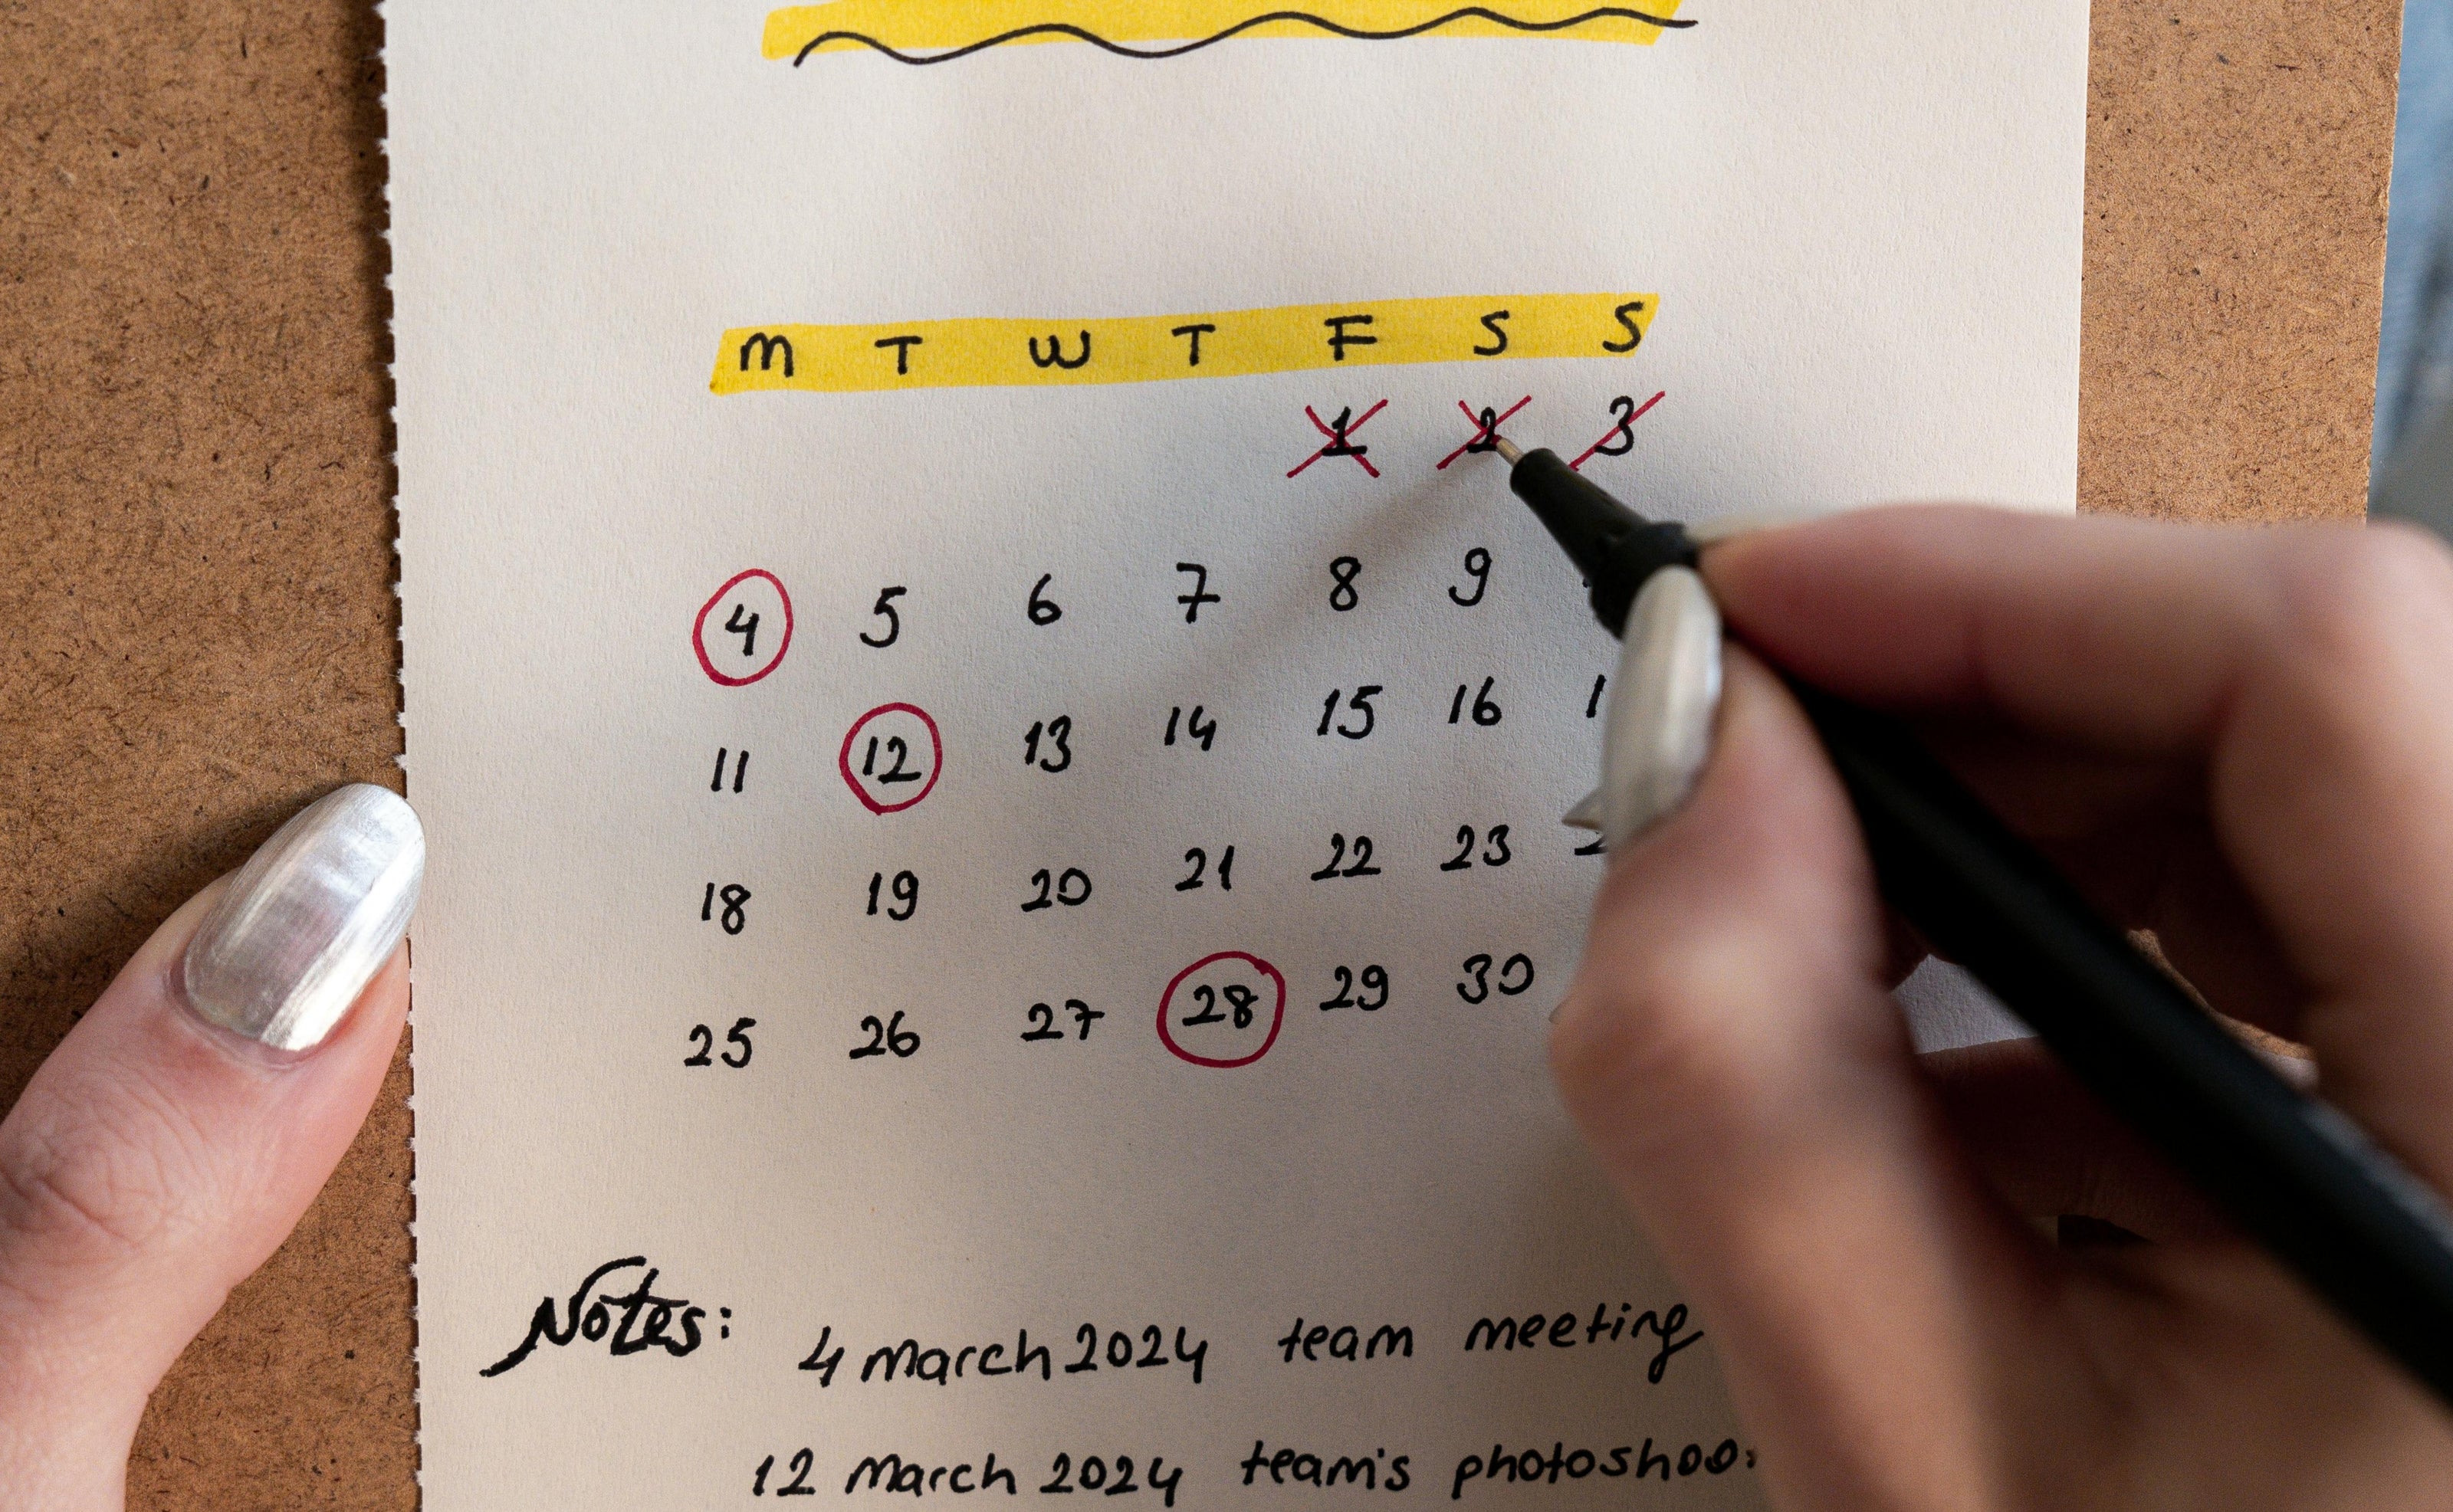 M T W T F S S
1 2 3
4 5 6 7 8 9
11 12 13 14 15 16
18 19 20 21 22 23
25 26 27 28 29 30
Notes: 4 march 2024 team meeting
12 march 2024 team's